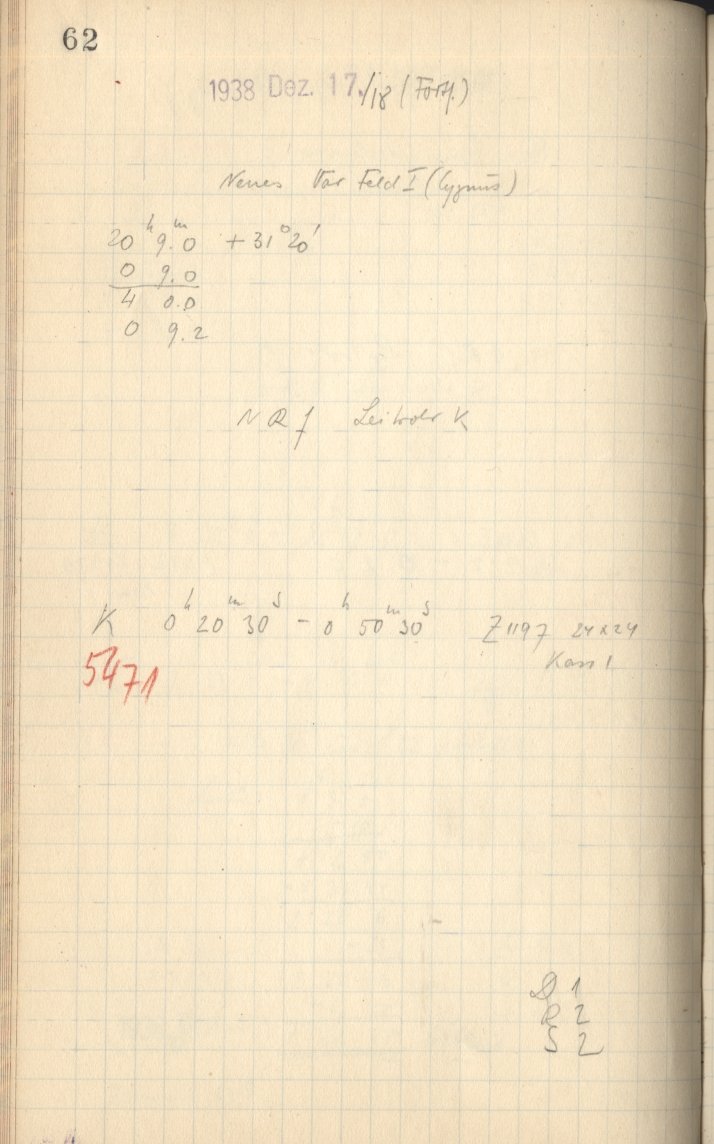 62
1938 Dez. 17./18 (Forts.)
Neues Var Feld I (Cygnus)
20ʰ 9.ᵐ0 +31°20'
0 9.0
4 0.0
0 9.2
N R f Leitrohr K
K 0ʰ 20ᵐ 30ˢ - 0ʰ 50ᵐ 30ˢ Z 1197 24x24
Kass 1
5471
D 1
R 2
S 2